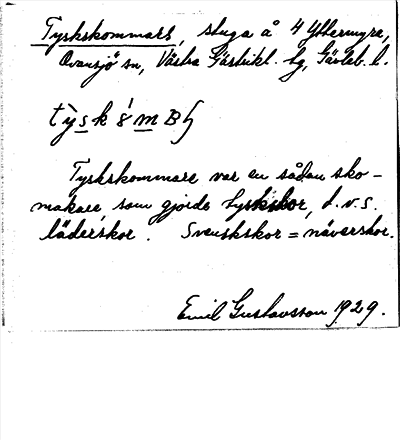 Tyskskommars, stuga å 4 Yttermyre,
Ovansjö sn, Västra Gästrikl. hg, Gävleb. l.
Tyskskommare var en sådan sko-
makare, som gjorde tyskskor, d.v.s.
läderskor. Svenskskor = näverskor.
Emil Gustavsson 1929.